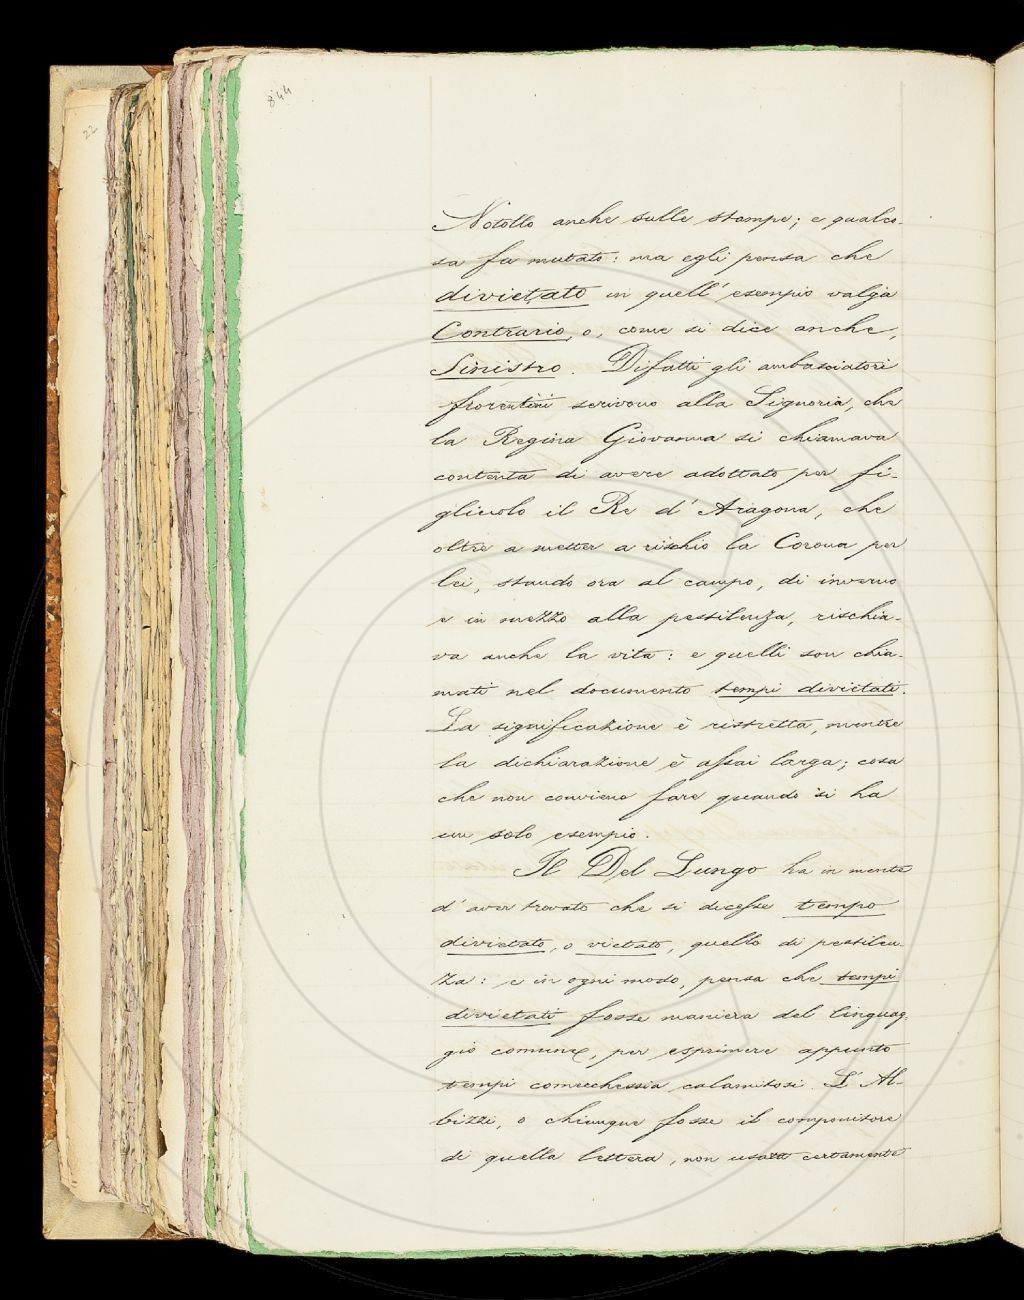 844
22
Notollo anche sulle stampe; e qualco-
sa fu mutato: ma egli pensa che
divietato in quell'esempio valga
Contrario, o, come si dice anche,
Sinistro. Difatti gli ambasciatori
fiorentini scrivono alla Signoria, che
la Regina Giovanna si chiamava
contenta di avere adottato per fi-
gliuolo il Re d'Aragona, che
oltre a metter a rischio la Corona per
lei, stando ora al campo, di inverno
e in mezzo alla pestilenza, rischia-
va anche la vita: e quelli son chia-
mati nel documento tempi divietati.
La significazione è ristretta, mentre
la dichiarazione è assai larga; cosa
che non conviene fare quando si ha
un solo esempio.
Il Del Lungo ha in mente
d'aver trovato che si dicesse tempo
divietato, o vietato, quello di pestilen
za: e in ogni modo, pensa che tempi
divietati fosse maniera del linguag-
gio comune, per esprimere appunto
tempi comechessia calamitosi. L'Al-
bizzi, o chiunque fosse il componitore
di quella lettera, non usava certamente